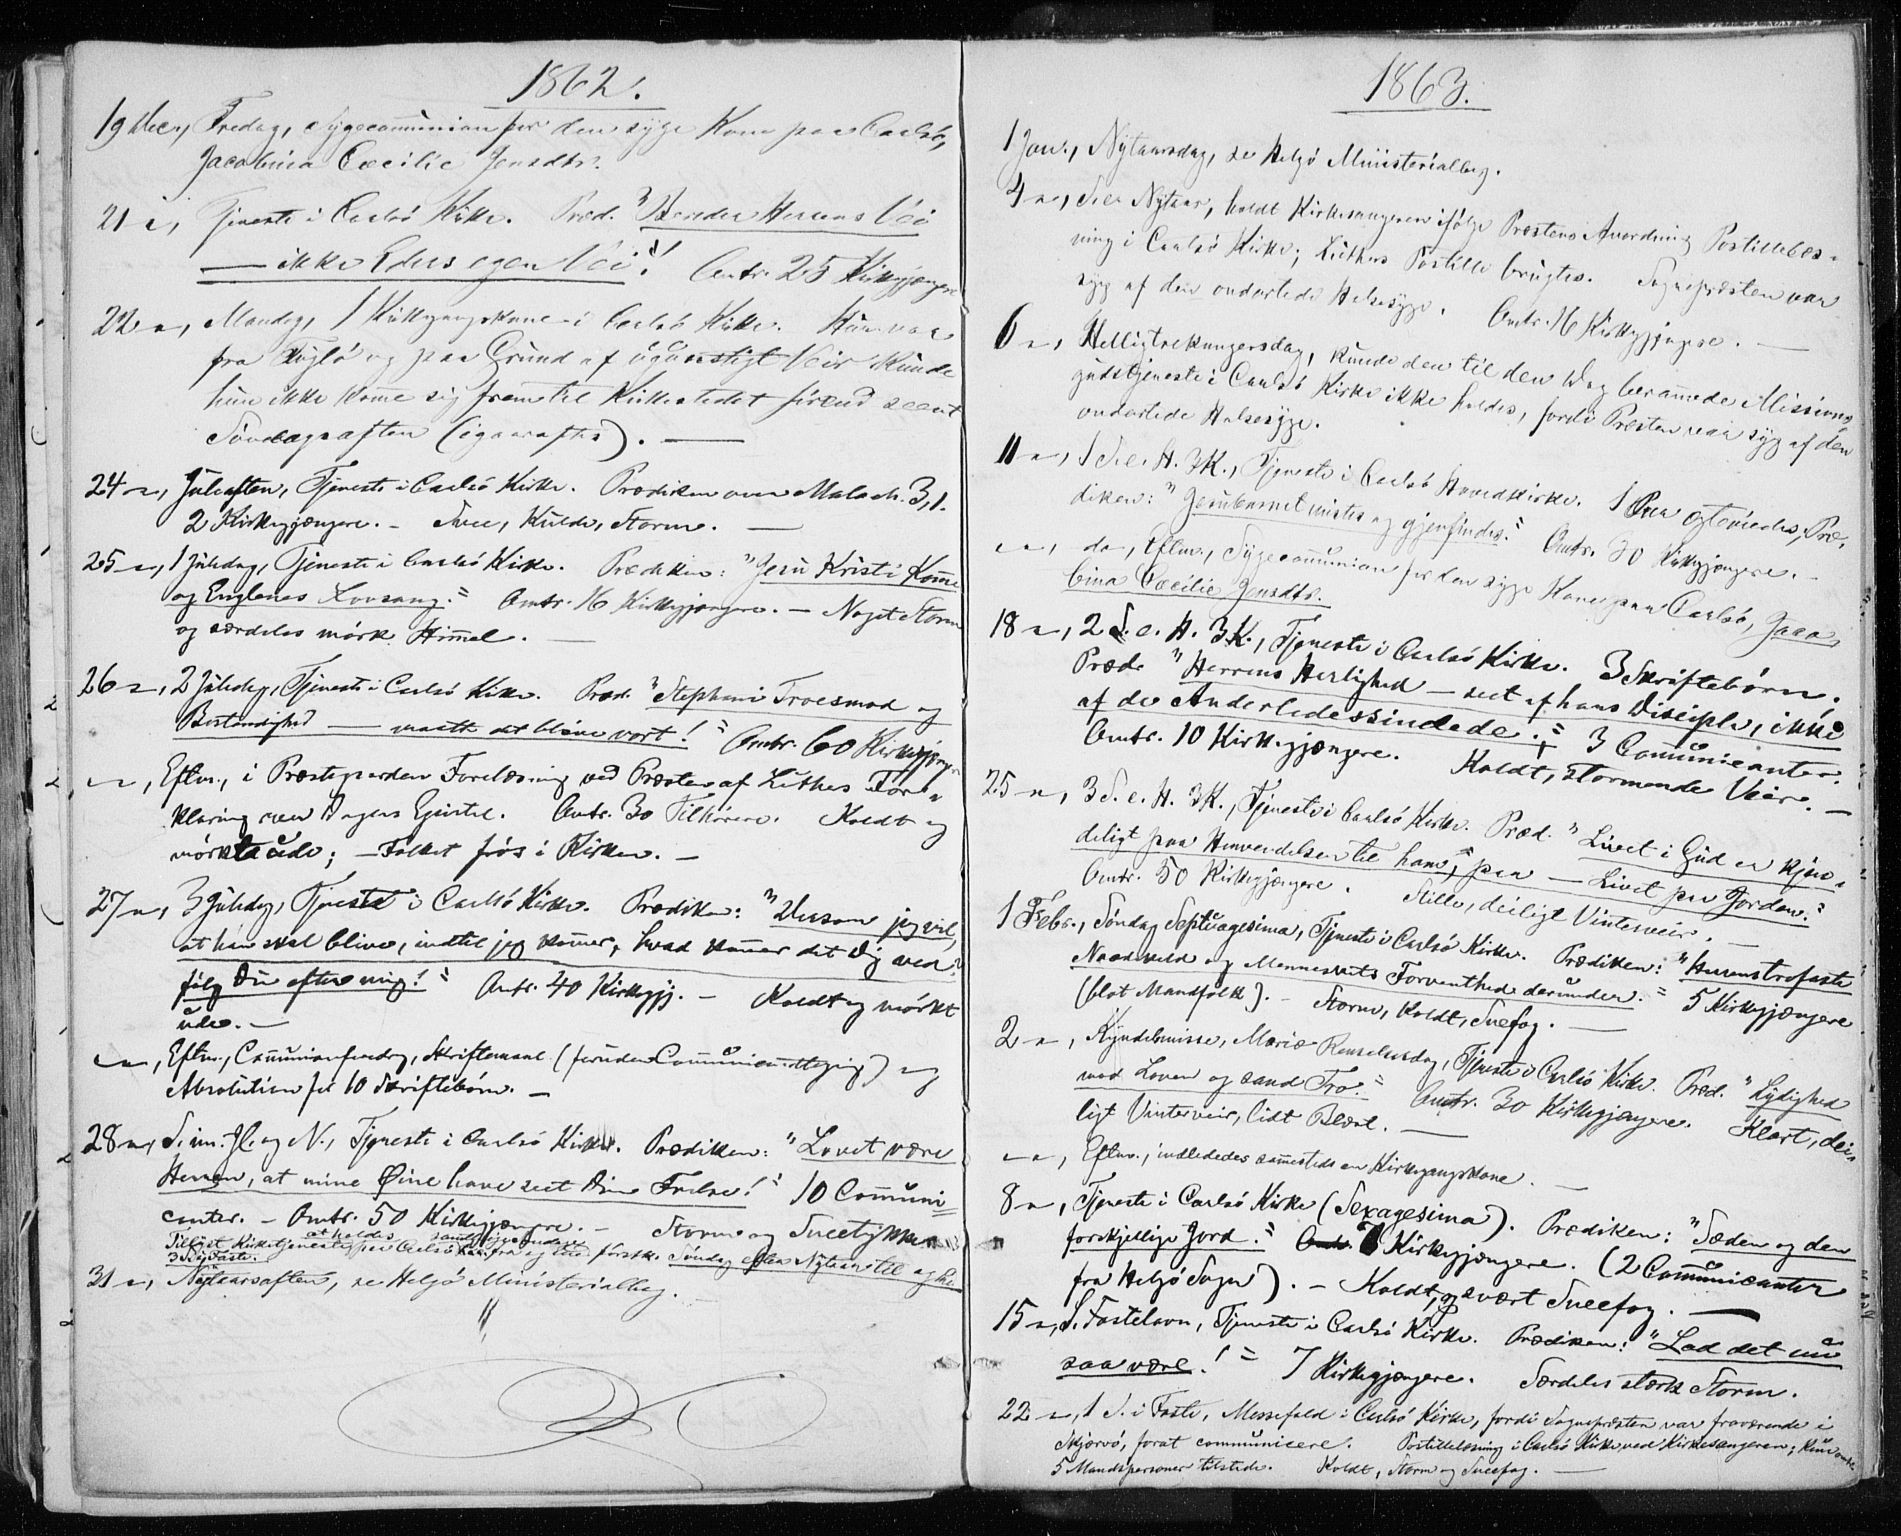 1862.
19 Dec., Fredag, Sygecommunion for den syge Kone paa Carlsö,
Jacobina Cæcilie Jensdtr.
21 –, Tjeneste i Carlsö Kirke. Præd. "Bereder Herrens Vei
— ikke Eders egen Vei!" Omtr. 25 Kirkegjængere
22 –, Mandag, 1 Kirkegangskone i Carlsö Kirke. Hun var
fra Fuglö og paa Grund af ugunstigt Veir kunde
hun ikke komme sig frem til Kirkestedet førend seent
Søndagsaften (igaaraftes). —
24 –, Juleaften, Tjeneste i Carlsö Kirke. Prædiken over Malach. 3,1.
2 Kirkegjængere. – Snee, Kulde, Storm. —
25 –, 1 Juledag, Tjeneste i Carlsö Kirke. Prædiken: "Jesu Kristi Komme
og Englenes Lovsang." Omtr. 16 Kirkegjængere. – Noget Storm
og særdeles mörk Himmel. —
26 –, 2 Juledag, Tjeneste i Carlsö Kirke. Præd. "Stephani Troesmod og
Bestandighed — maatte det blive vort!" Omtr. 60 Kirkegjængere
– –, Efterm., i Præstegaarden Forelæsning ved Præsten af Luthers For-
klaring over Dagens Epistel. Omtr. 30 Tilhørere. Koldt og
mörkt ude; – Folket frös i Kirken. –
27 –, 3 Juledag, Tjeneste i Carlsö Kirke. Prædiken: "Dersom jeg vil,
at han skal blive, indtil jeg kommer, hvad kommer det Dig ved?
følg Du efter mig!" Omtr. 40 Kirkegj. – Koldt og mörkt
ude. –
– –, Efterm., Communionsfredag, Skriftemaal (foruden Communion) og
Absolution for 10 Skriftebörn. –
28 –, S. im. Jl. og N., Tjeneste i Carlsö Kirke. Prædiken: "Lovet være
Herren, at mine Øine have seet Din Frelse!" 10 Communi-
canter. – Omtr. 50 Kirkegjængere. – Storm og Sneetykke
Tillyst Kirketjeneste at holdes paa Carlsö fra og med første Søndag efter Nytaar til og med
3 S. i Faste.
31 –, Nytaarsaften, se Helgö Ministerialbog. –
"
1863.
1 Jan., Nytaarsdag, se Helgö Ministerialbog.
4 –, S. e. Nytaar, holdt Kirkesangeren ifølge Præstens Anordning Postillelæs-
ning i Carlsö Kirke; Luthers Postille brugtes. Sognepræsten var
syg af den ondartede Halssyge. Omtr. 16 Kirkegjængere. —
6 –, Helligtrekongersdag, kunde den til den Dag berammede Missions-
gudstjeneste i Carlsö Kirke ikke holdes, fordi Præsten var syg af den
ondartede Halssyge.
11 –, 1 S. e. H. 3 K., Tjeneste i Carlsö Hovedkirke. 1 Par ægteviedes, Præ-
diken: "Jesubarnet mistes og gjenfindes." Omtr. 30 Kirkegjængere. –
– –, do, Efterm., Sygecommunion for den syge Kone paa Carlsö, Jaco-
bina Cæcilie Jensdtr.
18 –, 2 S. e. H. 3 K., Tjeneste i Carlsö Kirke. 3 Skriftebörn.
Præd. "Herrens Herlighed — seet af hans Disciple, ikke
af de Anderledessindede." 3 Communicanter.
Omtr. 10 Kirkegjængere. Koldt, stormende Veir. –
25 –, 3 S. e. H. 3 K., Tjeneste i Carlsö Kirke. Præd. "Livet i Gud er kjen-
deligt paa Henvendelsen til ham, paa — Livet paa Jorden."
Omtr. 50 Kirkegjængere. Stille, deiligt Vinterveir. —
1 Febr., Søndag Septuagesima, Tjeneste i Carlsö Kirke. Prædiken: "Herrens trofaste
Naadekald og Menneskets Forventhed derunder." 5 Kirkegjængere
(blot Mandfolk). – Storm, Koldt, Sneefog. —
2 –, Kyndelmisse, Mariæ Renselsesdag, Tjeneste i Carlsö Kirke. Præd. "Lydighed
mod Loven og sand Tro." Omtr. 30 Kirkegjængere. Klart, dei-
ligt Vinterveir, lidt Blæst. —
– –, Efterm., indlededes sammesteds en Kirkegangskone. —
8 –, Tjeneste i Carlsö Kirke (Sexagesima). Prædiken: "Sæden og den
forskjellige Jord." 8 Kirkegjængere. (2 Communicanter
fra Helgö Sogn). – Koldt, og svært Sneefog. —
15 –, S. Fastelavn, Tjeneste i Carlsö Kirke. Prædiken: "Lad det nu
saa være!" 7 Kirkegjængere. Særdeles stærk Storm.
22 –, 1 S. i Faste, Messefald i Carlsö Kirke, fordi Sognepræsten var fraværende i
Skjervö, forat communicere. Postillelæsning i Carlsö Kirke ved Kirkesangeren; kun omtr.
5 Mandspersoner tilstede. Koldt, Storm og Sneefog. —